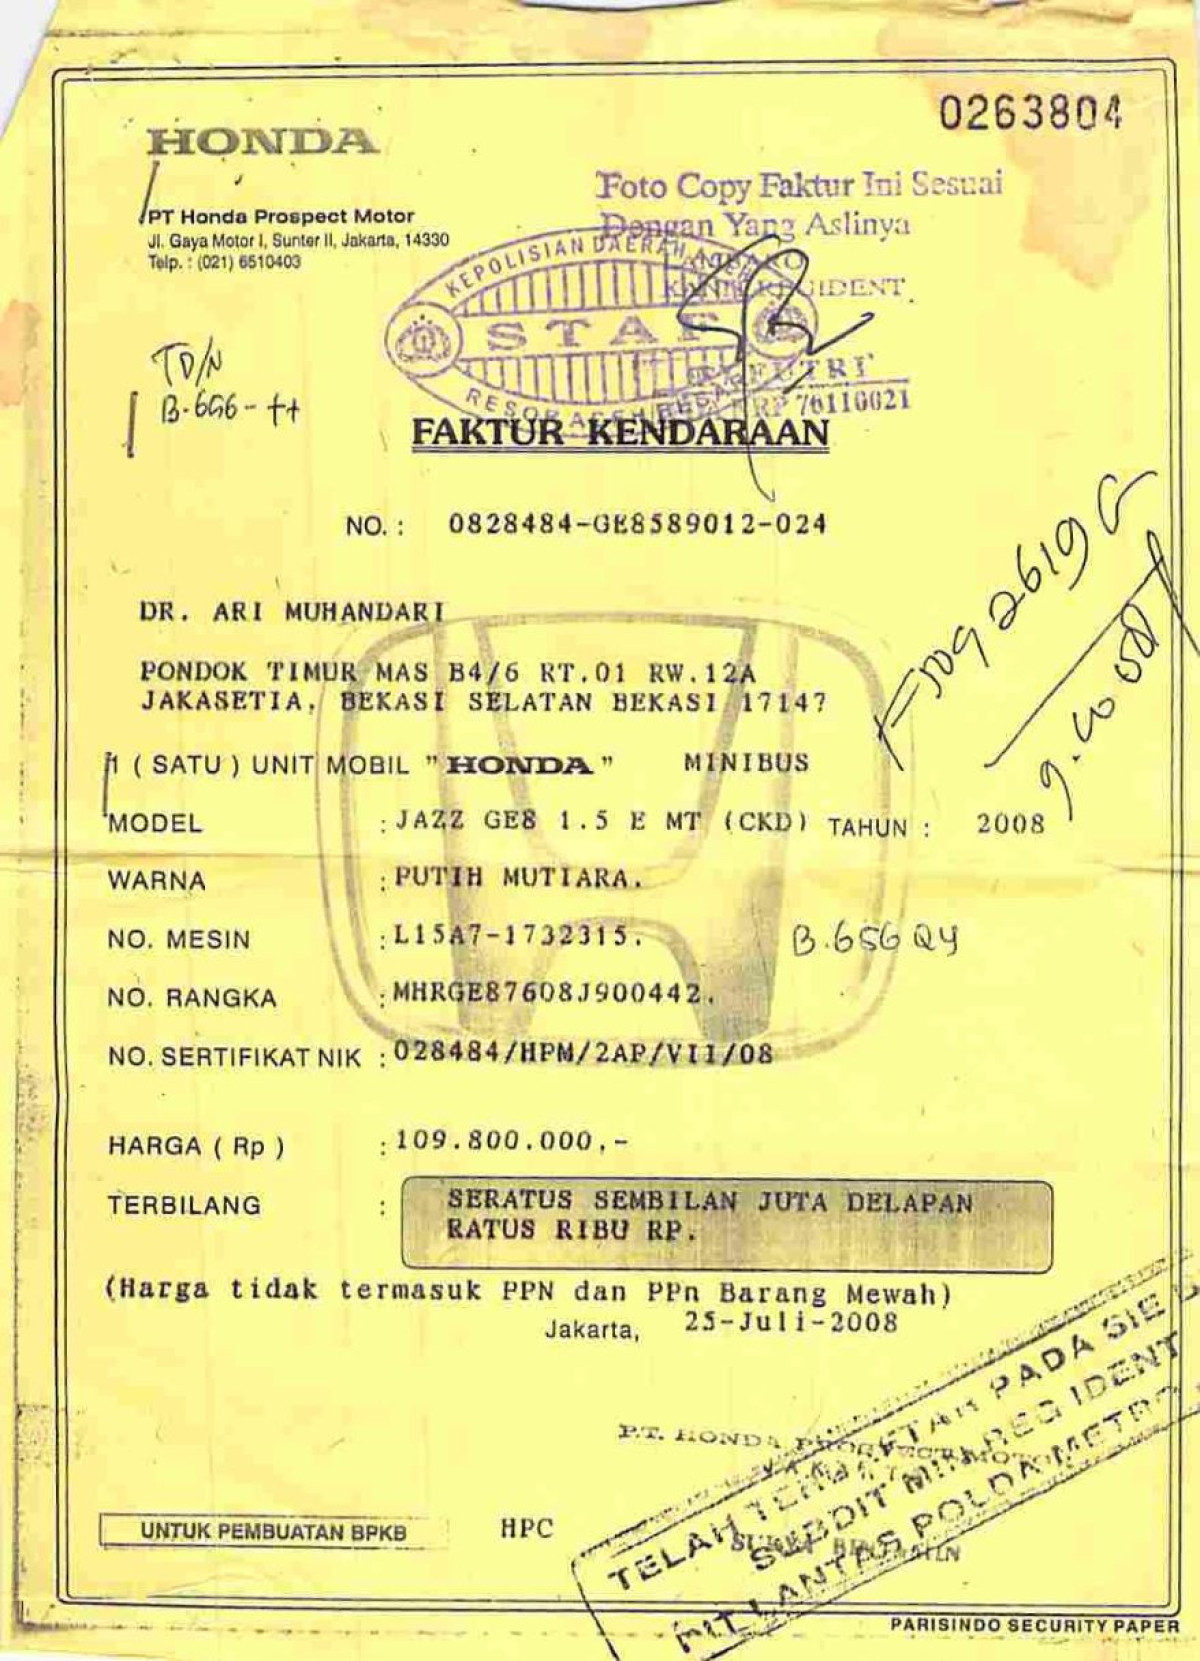 0263804
HONDA
PT Honda Prospect Motor
Jl. Gaya Motor I, Sunter II, Jakarta, 14330
Telp. : (021) 6510403
Foto Copy Faktur Ini Sesuai
Dengan Yang Aslinya
KEPOLISIAN DAERAH ACEH
STAF
RESOR ACEH BESAR
NRP 76110021
TD/N
B-656-++
FAKTUR KENDARAAN
NO. : 0828484-GE8589012-024
DR. ARI MUHANDARI
PONDOK TIMUR MAS B4/6 RT.01 RW.12A
JAKASETIA, BEKASI SELATAN BEKASI 17147
1 ( SATU ) UNIT MOBIL " HONDA " MINIBUS
MODEL : JAZZ GE8 1.5 E MT (CKD) TAHUN : 2008
WARNA : PUTIH MUTIARA.
NO. MESIN : L15A7-1732315.
B.656 QY
NO. RANGKA : MHRGE87608J900442.
NO. SERTIFIKAT NIK : 028484/HPM/2AP/VII/08
HARGA ( Rp ) : 109.800.000,-
TERBILANG : SERATUS SEMBILAN JUTA DELAPAN
RATUS RIBU RP.
(Harga tidak termasuk PPN dan PPn Barang Mewah)
Jakarta, 25-Juli-2008
P.T. HONDA PROSPECT MOTOR
TELAH TERDAFTAR PADA SIE
SUBDIT MIN REG IDENT
DIT LANTAS POLDA METRO
UNTUK PEMBUATAN BPKB
HPC
PARISINDO SECURITY PAPER